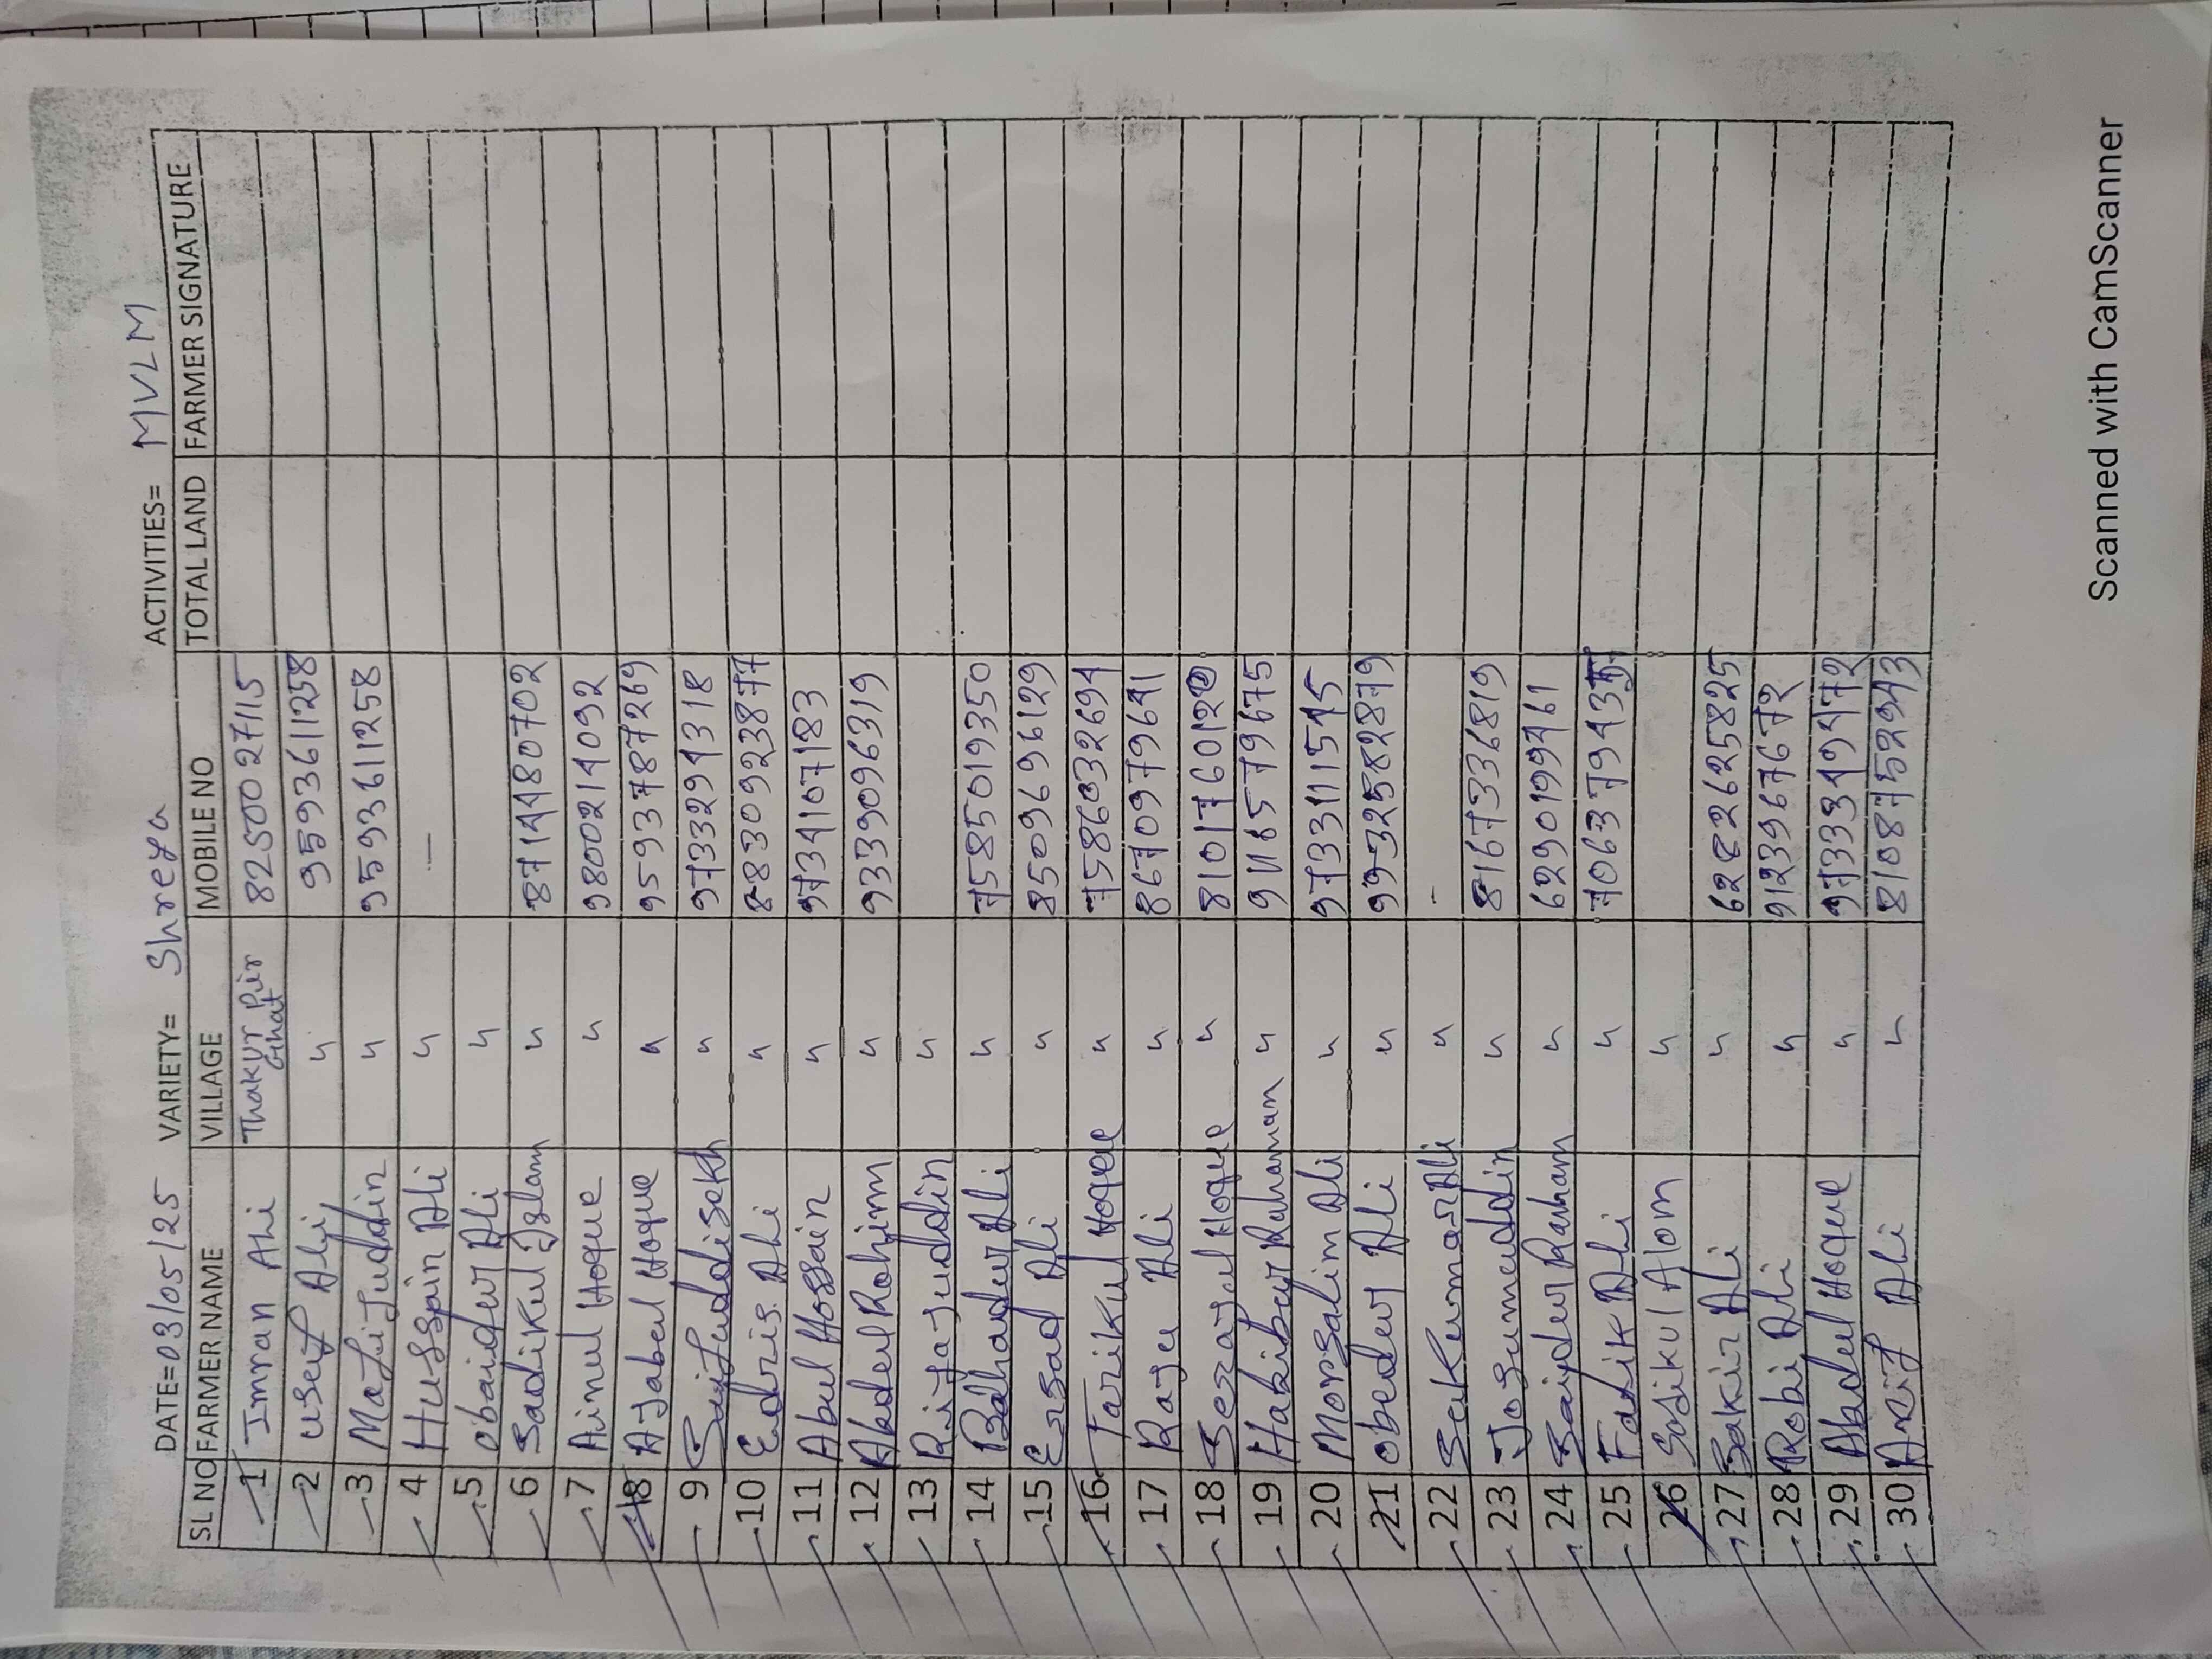 DATE=03/05/25 VARIETY= Shreya ACTIVITIES= MVLM
SL NO FARMER NAME VILLAGE MOBILE NO TOTAL LAND FARMER SIGNATURE
1 Imran Ali Thakur Pir Ghat 8250027115
2 Usuf Ali " 9593611258
3 Mafijuddin " 9593611258
4 Hussain Ali " —
5 Obaidur Ali "
6 Sadikul Islam " 8714480702
7 Ainul Hoque " 9800214092
8 Ajabul Hoque " 9593787269
9 Saifuddisekh " 9733294318
10 Edris Ali " 8830923877
11 Abul Hossain " 9734107183
12 Abdul Rohim " 9339096319
13 Rijajuddin "
14 Balhadur Ali " 7585019350
15 Ersad Ali " 8509696129
16 Tarikul Hoque " 7586032694
17 Raju Ali " 8670979641
18 Serajul Hoque " 810176012
19 Habibur Rahaman " 9116579675
20 Morsalim Ali " 9733111545
21 Obedur Ali " 9932582879
22 Sukumar Ali " -
23 Josumuddin " 8167336819
24 Saiydur Rarham " 6290199461
25 Fadik Ali " 706379435
26 Sadikul Alom "
27 Sakir Ali " 6282625825
28 Robi Ali " 9123967672
29 Abdul Hoque " 9733349472
30 Arif Ali " 8108752943
Scanned with CamScanner